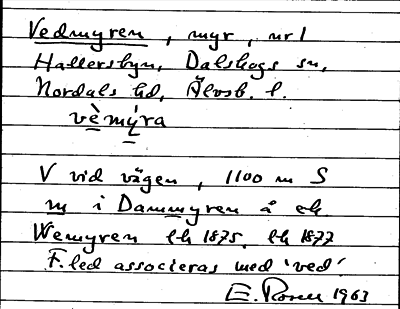 Vedmyren, myr, nr 1
Hallersbyn, Dalskogs sn,
Nordals hd, Älvsb. l.
vèmýra
V vid vägen, 1100 m S
m i Dammyren å ek.
Wemyren lk 1875, lk 1877
F.led associeras med 'ved'
E. 1963